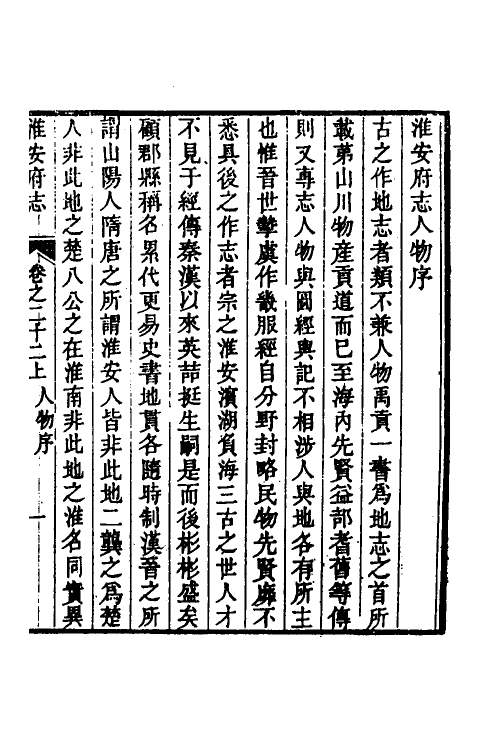 淮安府志人物序
古之作地志者類不兼人物禹貢一書爲地志之首所
載第山川物産貢道而巳至海内先賢益部耆舊等傳
則又專志人物與圖經輿記不相涉人與地各有所主
也惟晉世摯虞作畿服經自分野封略民物先賢靡不
悉具後之作志者宗之淮安濱湖負海三古之世人才
不見于經傳秦漢以來英喆挺生嗣是而後彬彬盛矣
顧郡縣稱名累代更易史書地貫各隨時制漢晉之所
謂山陽人隋唐之所謂淮安人皆非此地二龔之爲楚
人非此地之楚八公之在淮南非此地之淮名同實異
淮安府志
卷之二十二上 人物序 一